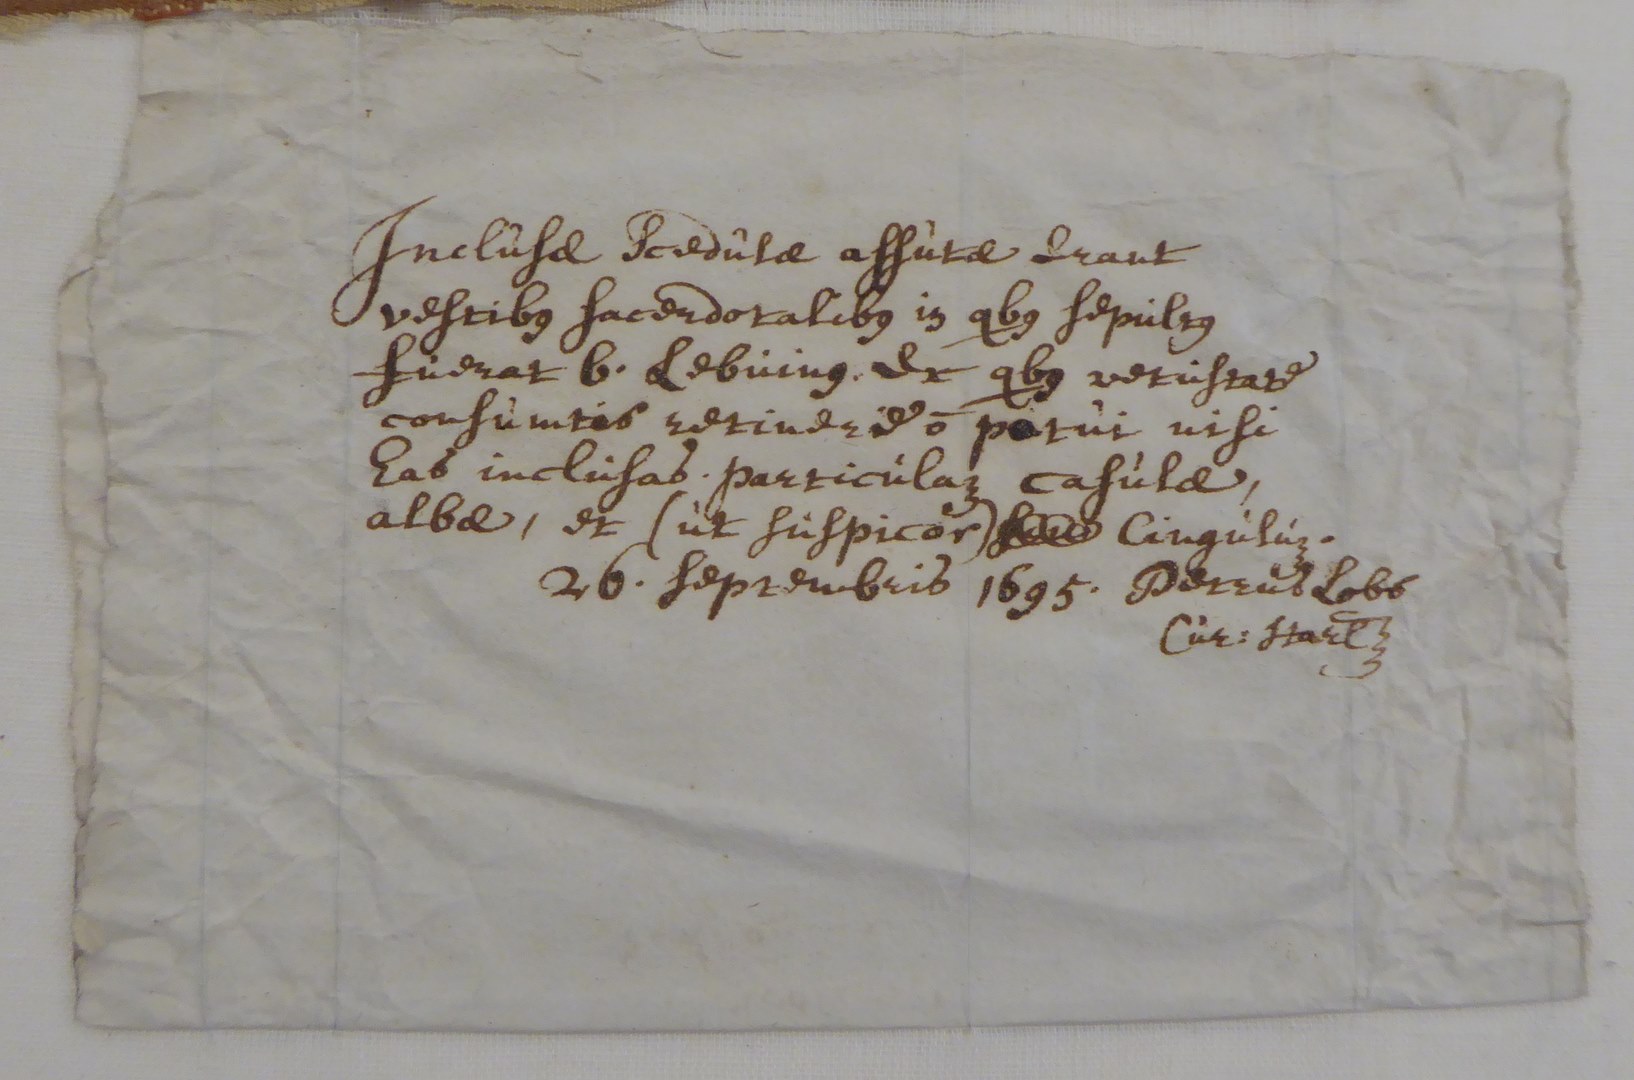 Inclusæ Scedulæ assutæ erant
vestibꝰ sacerdotalibꝰ in qbꝰ sepultꝰ
fuerat b. Lebuinꝰ. Ex qbꝰ vetustate
consumtis retinere ō potui nisi
has inclusas. particulaʒ casulæ,
albæ, et (ut suspicor) Cinguluʒ.
26. septembris 1695. Petrus Lobs
Cur: